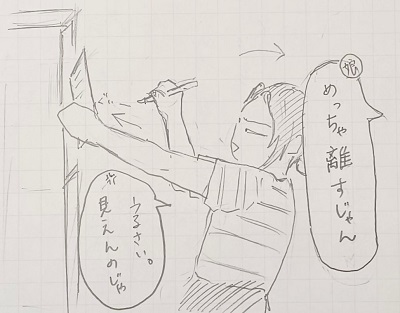 娘
めっちゃ離すじゃん
ぐい
うるさい。
見えんのじゃ